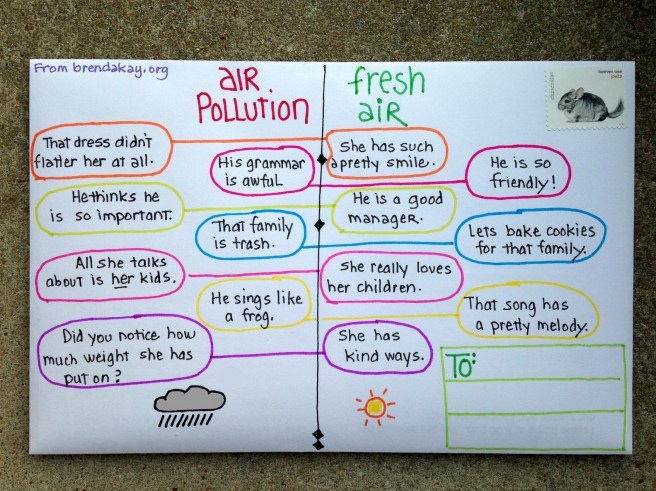 From brendakay.org
aIR
PoLLuTIoN
fresh
aiR
That dress didn't
flatter her at all.
She has such
a pretty smile.
His grammar
is awfuL
He is so
friendly!
He thinks he
is so important.
He is a good
manager.
That family
is trash.
Lets bake cookies
for that family.
All she talks
about is her kids.
She really loves
her children.
He sings like
a frog.
That song has
a pretty melody.
Did you notice how
much weight she has
put on?
She has
kind ways.
To: